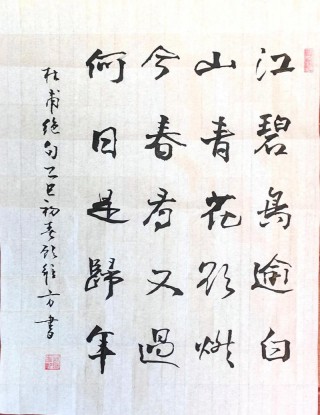 江碧鳥逾白
山青花欲燃
今春看又過
何日是歸年
杜甫絕句乙巳初春方書